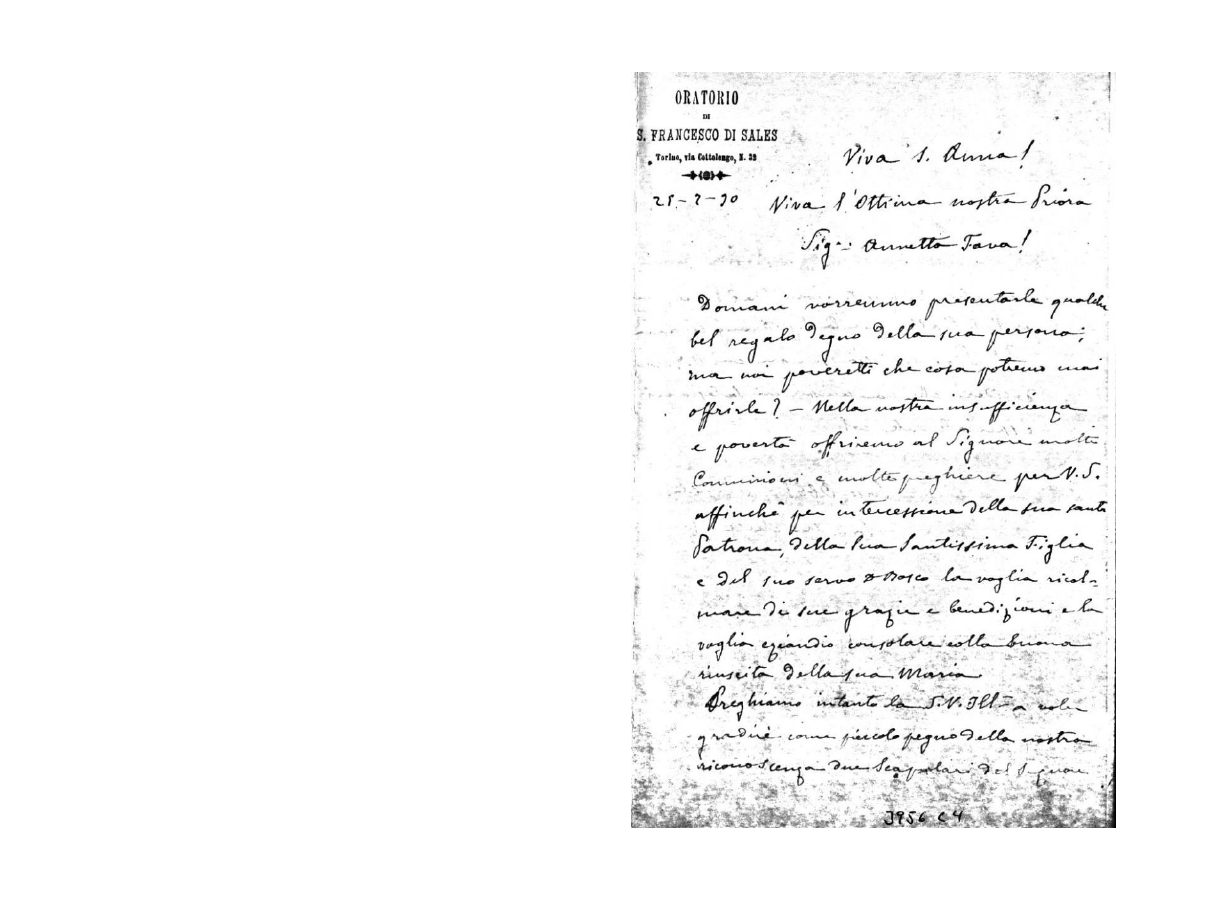 ORATORIO
DI
S. FRANCESCO DI SALES
Torino, via Cottolengo, N. 32
25-7-90
Viva S. Anna!
Viva l'Ottima nostra Priora
Sig.ª Annetta Fava!
Domani vorremmo presentarle qualche
bel regalo degno della sua persona;
ma noi poveretti che cosa potremo mai
offrirle? - Nella nostra insufficienza
e povertà offriremo al Signore molte
Comunioni e molte preghiere per V. S.
affinchè per intercessione della sua santa
Patrona, della Sua Santissima Figlia
e del suo servo D Bosco la voglia ricol=
mare di sue grazie e benedizioni e la
voglia eziandio consolare colla buona
riuscita della sua Maria
Preghiamo intanto la S. V. Ill-a voler
gradire come piccolo pegno della nostra
riconoscenza due Scapolari del Signore
3956 C4